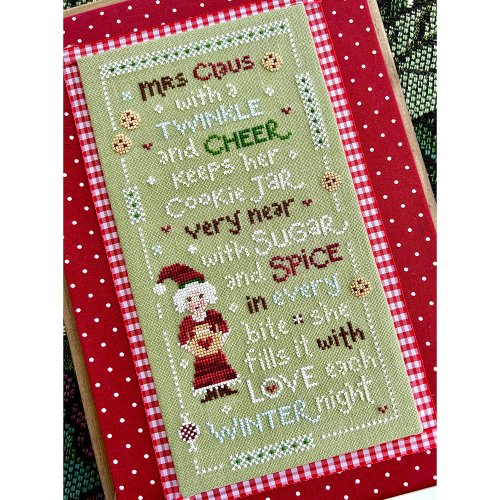 MRS CLAUS
with a
TWINKLE
and CHEER
keeps her
COOKIE JAR
very near
with SUGAR
and SPICE
in every
bite she
fills it with
LOVE each
WINTER night